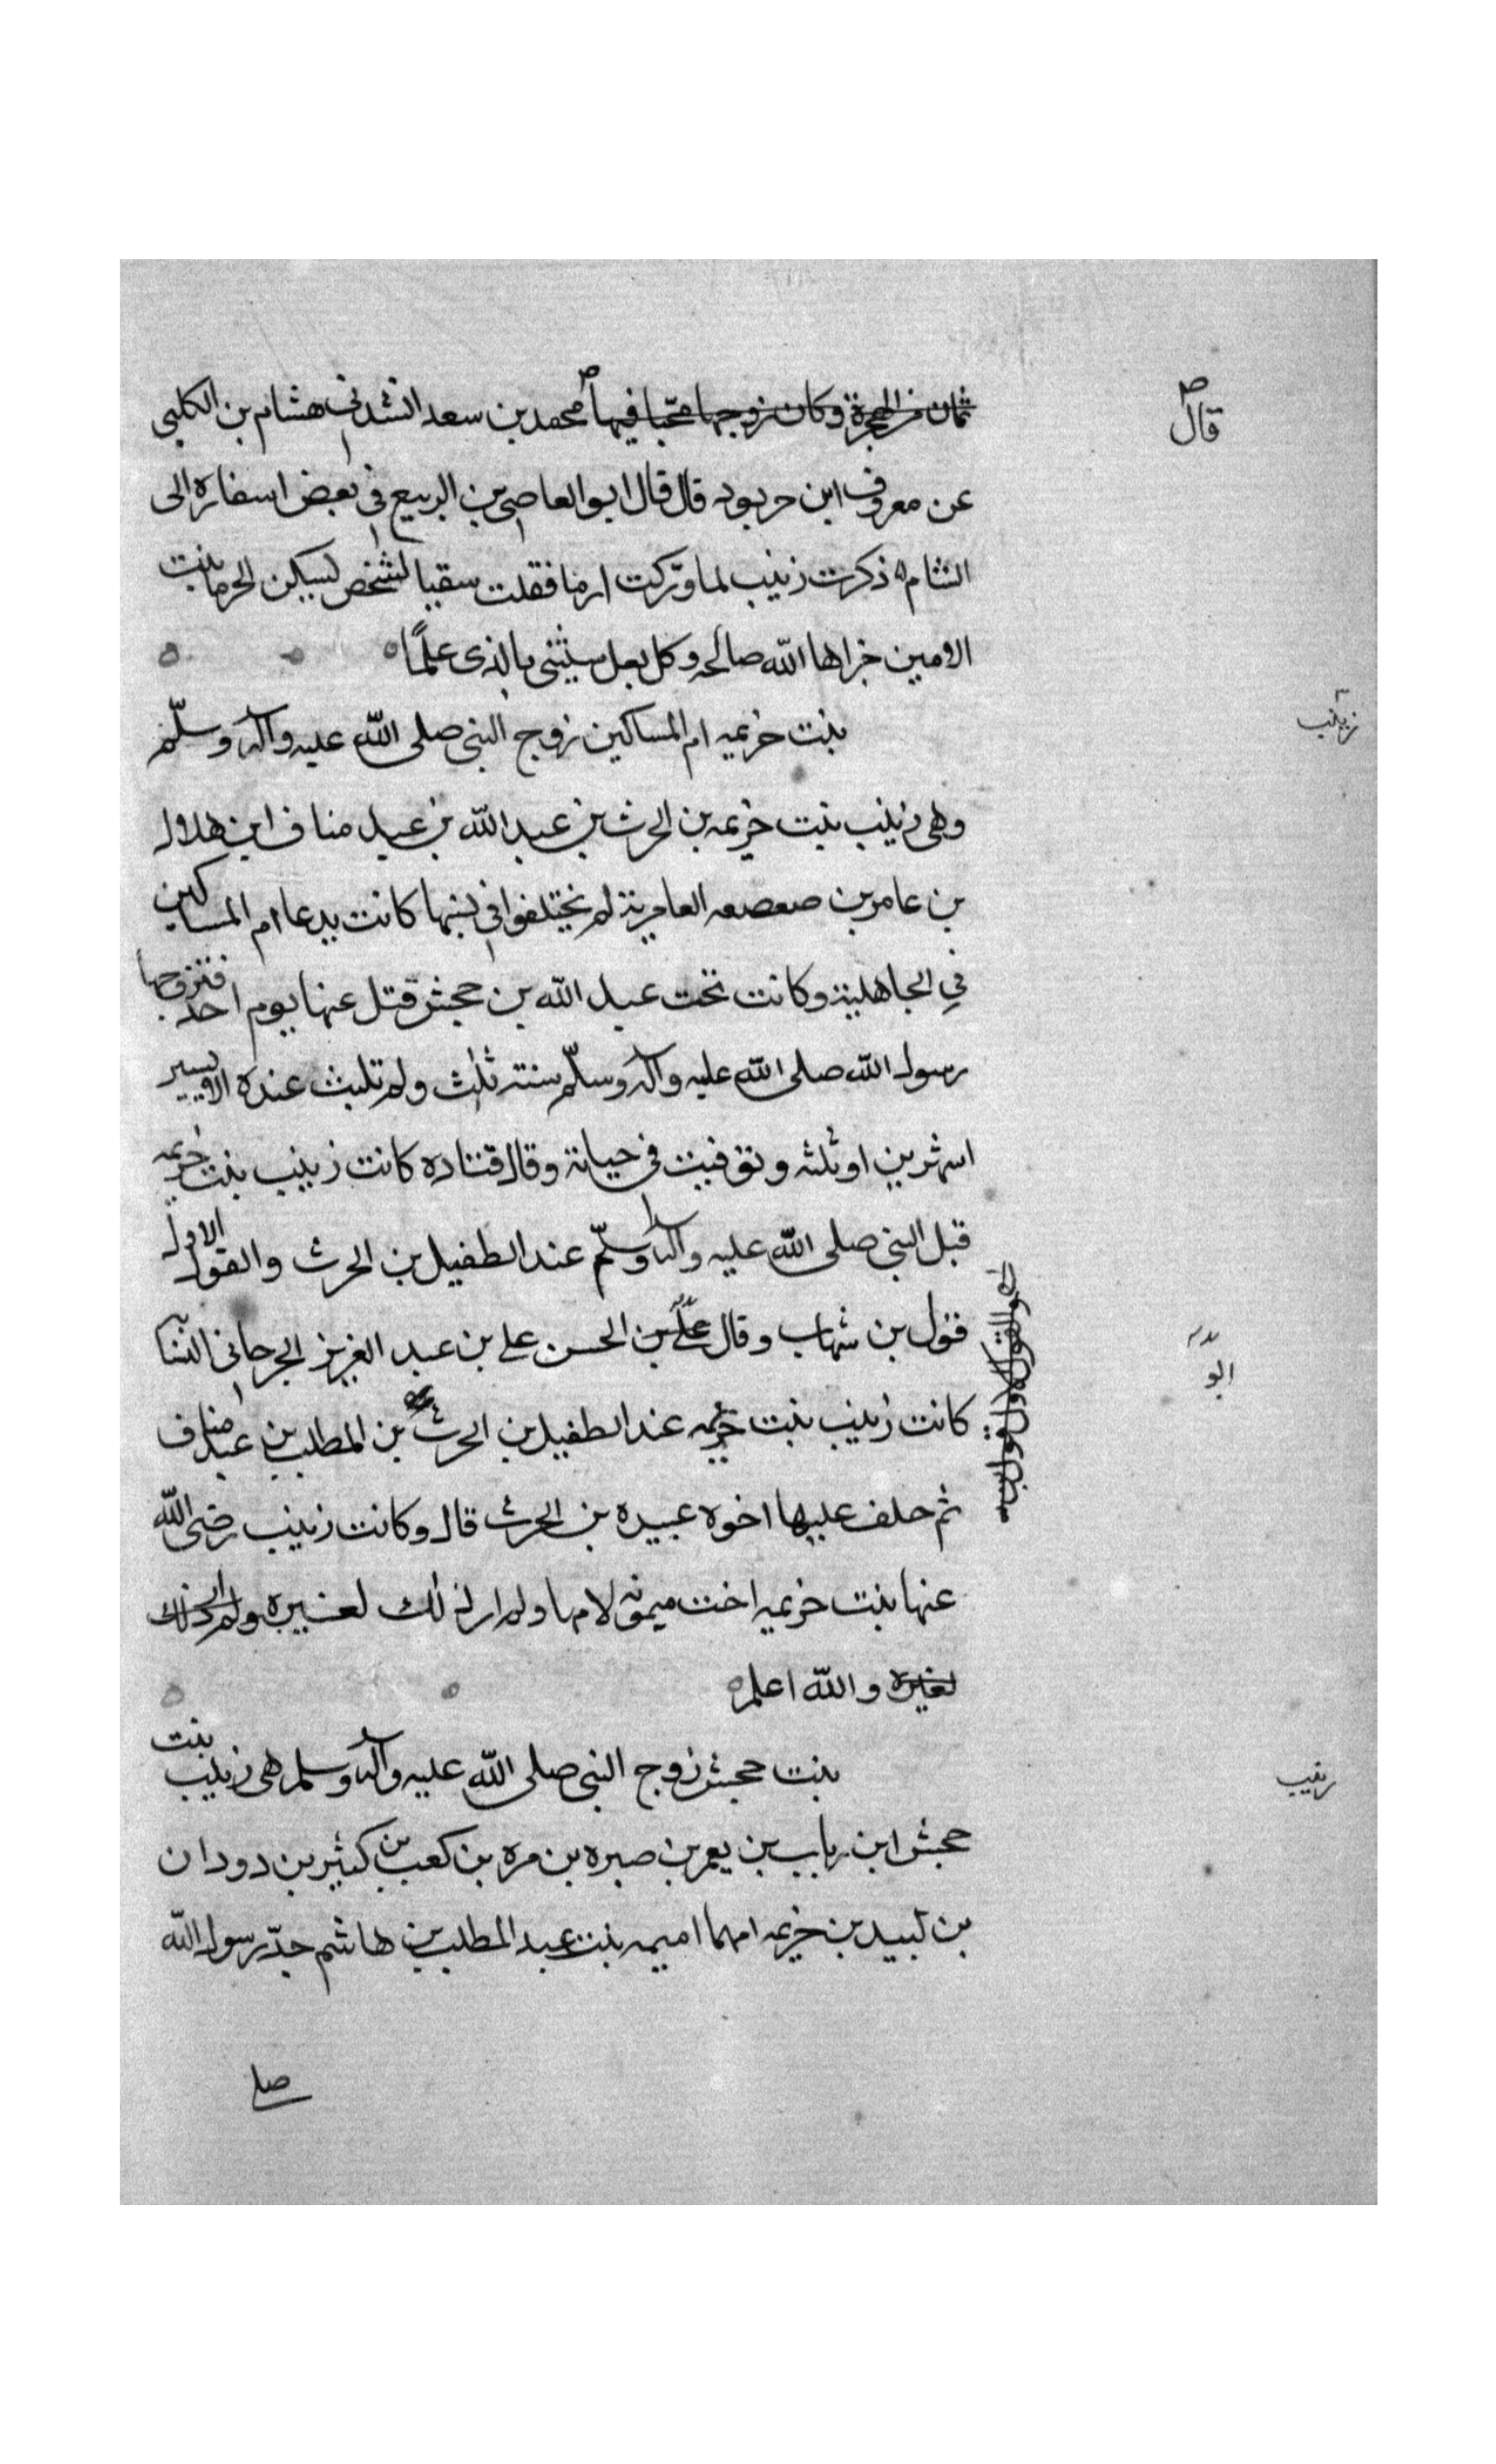 ثمان من الهجرة وكان زوجها محبا فيها محمد بن سعد انشدنى هشام بن الكلبى
قال
عن معروف ابن حربود قال قال ابو العاصى بن الربيع فى بعض اسفاره الى
الشام ذكرت زينب لما وركت ارما فقلت سقيا لشخص يسكن الحرما بنت
الامين جزاها الله صالحه وكل بعل سيثنى بالذى علما
زينب
بنت خزيمه ام المساكين زوج النبى صلى الله عليه وآله وسلّم
وهى زينب بنت خزيمه بن الحرث بن عبد الله بن عبد مناف ابن هلال
بن عامر بن صعصعه العامرية لم يختلفوا فى نسبها كانت يدعا ام المساكين
فى الجاهلية وكانت تحت عبد الله بن جحش قتل عنها يوم احد فتزوجها
رسول الله صلى الله عليه وآله وسلّم سنة ثلث ولم تلبث عنده الا يسير
اشهرين او ثلثه وتوفيت فى حياته وقال قتاده كانت زينب بنت خزيمه
قبل النبى صلى الله عليه وآله وسلّم عند الطفيل بن الحرث والقول الاول
فقول بن شهاب وقال على بن الحسن على بن عبد العزيز الجرجانى النسا
ابو
كانت زينب بنت خزيمه عند الطفيل بن الحرث بن المطلب بن عبد مناف
ثم خلف عليها اخوه عبيده بن الحرث قال وكانت زينب رضى الله
عنها بنت خزيمه اخت ميمونه لامها ولم ار ذلك لغيره ولم ار ذلك
لغيره والله اعلم
زينب
بنت جحش زوج النبى صلى الله عليه وآله وسلم هى زينب بنت
جحش ابن رباب بن يعمر بن صبره بن مره بن كعب بن كثير بن دودان
بن لبيد بن خزيمه امها اميمه بنت عبد المطلب بن هاشم جدّ رسول الله
صلى